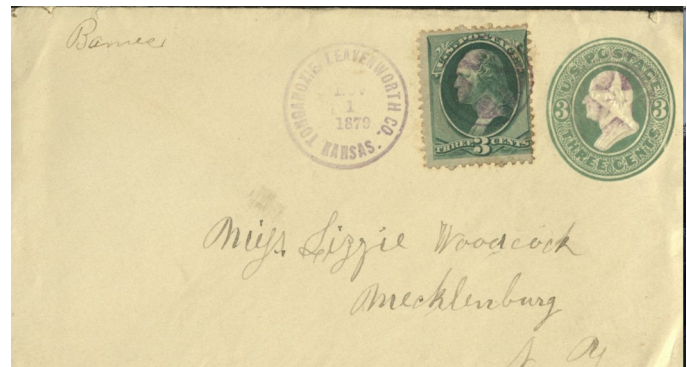 Barnes
TONGANOXIE, LEAVENWORTH CO.
NOV
1
1879
KANSAS.
U.S. POSTAGE
THREE 3 CENTS
U.S. POSTAGE
3 3
THREE CENTS
Miss. Lizzie Woodcock
Mecklenburg
N. Y.